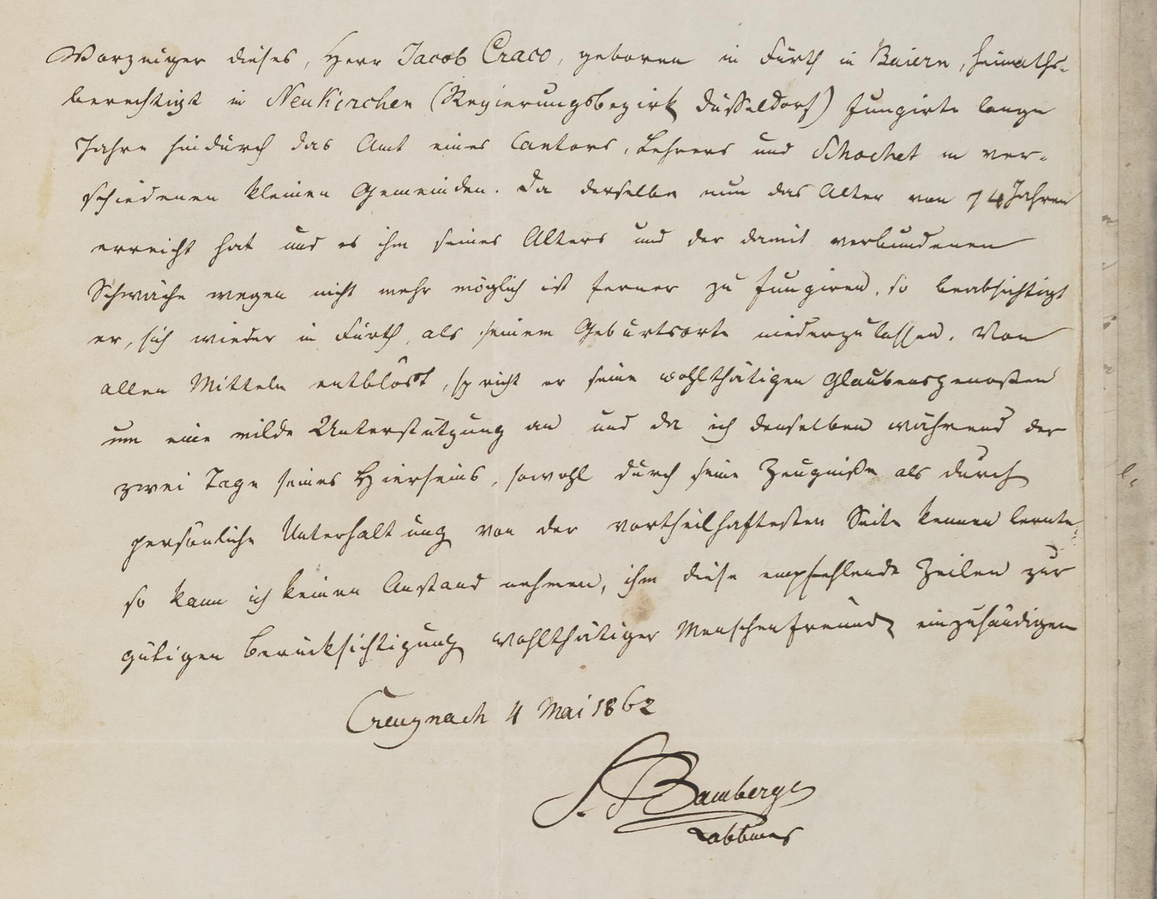 Vorzeiger dieses, Herr Jacob Craco, geboren in Fürth in Baiern, heimaths-
berechtigt in Neukirchen (Regierungsbezirk Düsseldorf) fungirte lange
Jahre hindurch das Amt eines Cantors, Lehrers und Schochet in ver-
schiedenen kleinen Gemeinden. Da derselbe nun das Alter von 74 Jahren
erreicht hat und es ihm seines Alters und der damit verbundenen
Schwäche wegen nicht mehr möglich ist ferner zu fungiren, so beabsichtigt
er, sich wieder in Fürth, als seinem Geburtsorte niederzulassen. Von
allen Mitteln entblöst, spricht er seine wohlthätigen Glaubensgenoßen
um eine milde Unterstützung an und da ich denselben während der
zwei Tage seines Hierseins, sowohl durch seine Zeugniße als durch
persönliche Unterhaltung von der vortheilhaftesten Seite kennen lernte,
so kann ich keinen Anstand nehmen, ihm diese empfehlende Zeilen zur
gütigen Berücksichtigung wohlthätiger Menschenfreunde einzuhändigen
Creuznach 4 Mai 1862
S. Bamberge
Rabbiner